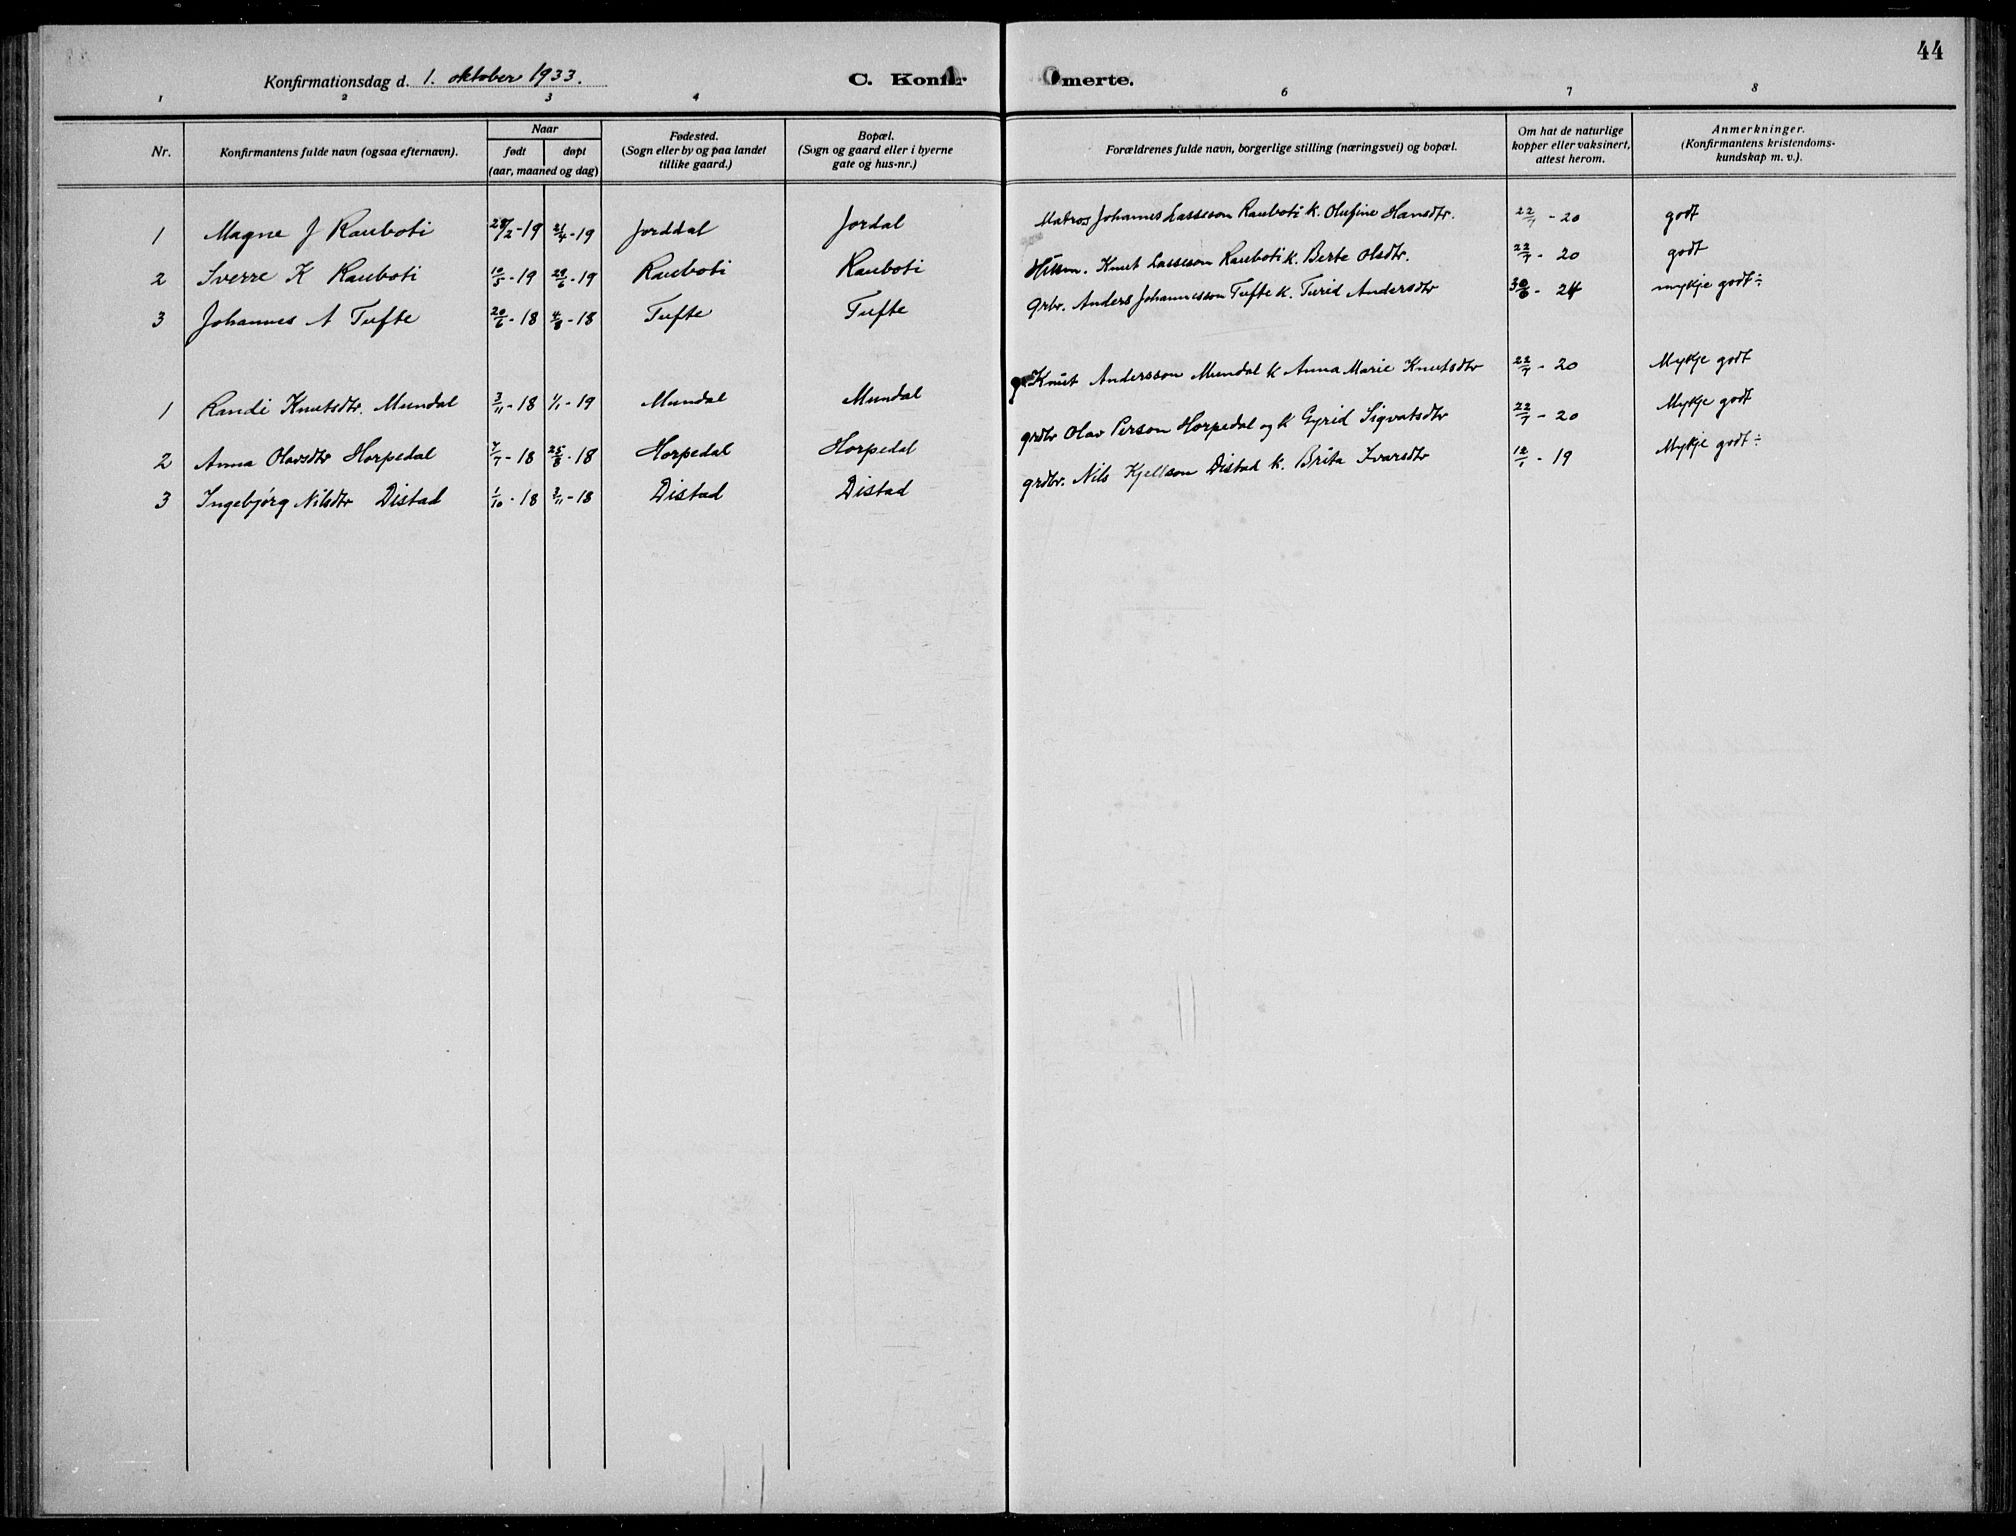 44
Konfirmationsdag d. 1. oktober 1933.
C. Konfir merte.
1 2 3 4 6 7 8
Nr.
Konfirmantens fulde navn (ogsaa efternavn).
Naar
født døpt
(aar, maaned og dag)
Fødested.
(Sogn eller by og paa landet
tillike gaard.)
Bopæl.
(Sogn og gaard eller i byerne
gate og hus-nr.)
Forældrenes fulde navn, borgerlige stilling (næringsvei) og bopæl.
Om hat de naturlige
kopper eller vaksinert,
attest herom.
Anmerkninger.
(Konfirmantens kristendoms-
kundskap m. v.).
1 Magne J Rauboti 28/2-19 21/4-19 Jorddal Jordal Matros Johannes Lasseson Rauboti k. Olufine Hansdtr. 22/7-20 godt
2 Sverre K Rauboti 10/5-19 29/6-19 Rauboti Rauboti Husm. Knut Lasseson Rauboti k. Berte Olsdtr. 22/7-20 godt
3 Johannes A Tufte 20/6-18 4/8-18 Tufte Tufte Grbr. Anders Johannesson Tufte k. Turid Andersdtr 30/6-24 mykje godt÷
1 Randi Knutsdtr. Mundal 3/11-18 1/1-19 Mundal Mundal Knut Andersson Mundal k Anna Marie Knutsdtr 22/7-20 Mykje godt
2 Anna Olavsdtr Horpedal 7/7-18 25/8-18 Horpedal Horpedal grdbr Olav Person Horpedal og k Gyrid Sigvatsdtr 22/7-20 Mykje godt
3 Ingebjörg Nilsdtr Distad 1/10-18 3/11-18 Distad Distad grdbr. Nils Kjellson Distad k. Brita Ivarsdtr 12/1-19 Mykje godt÷